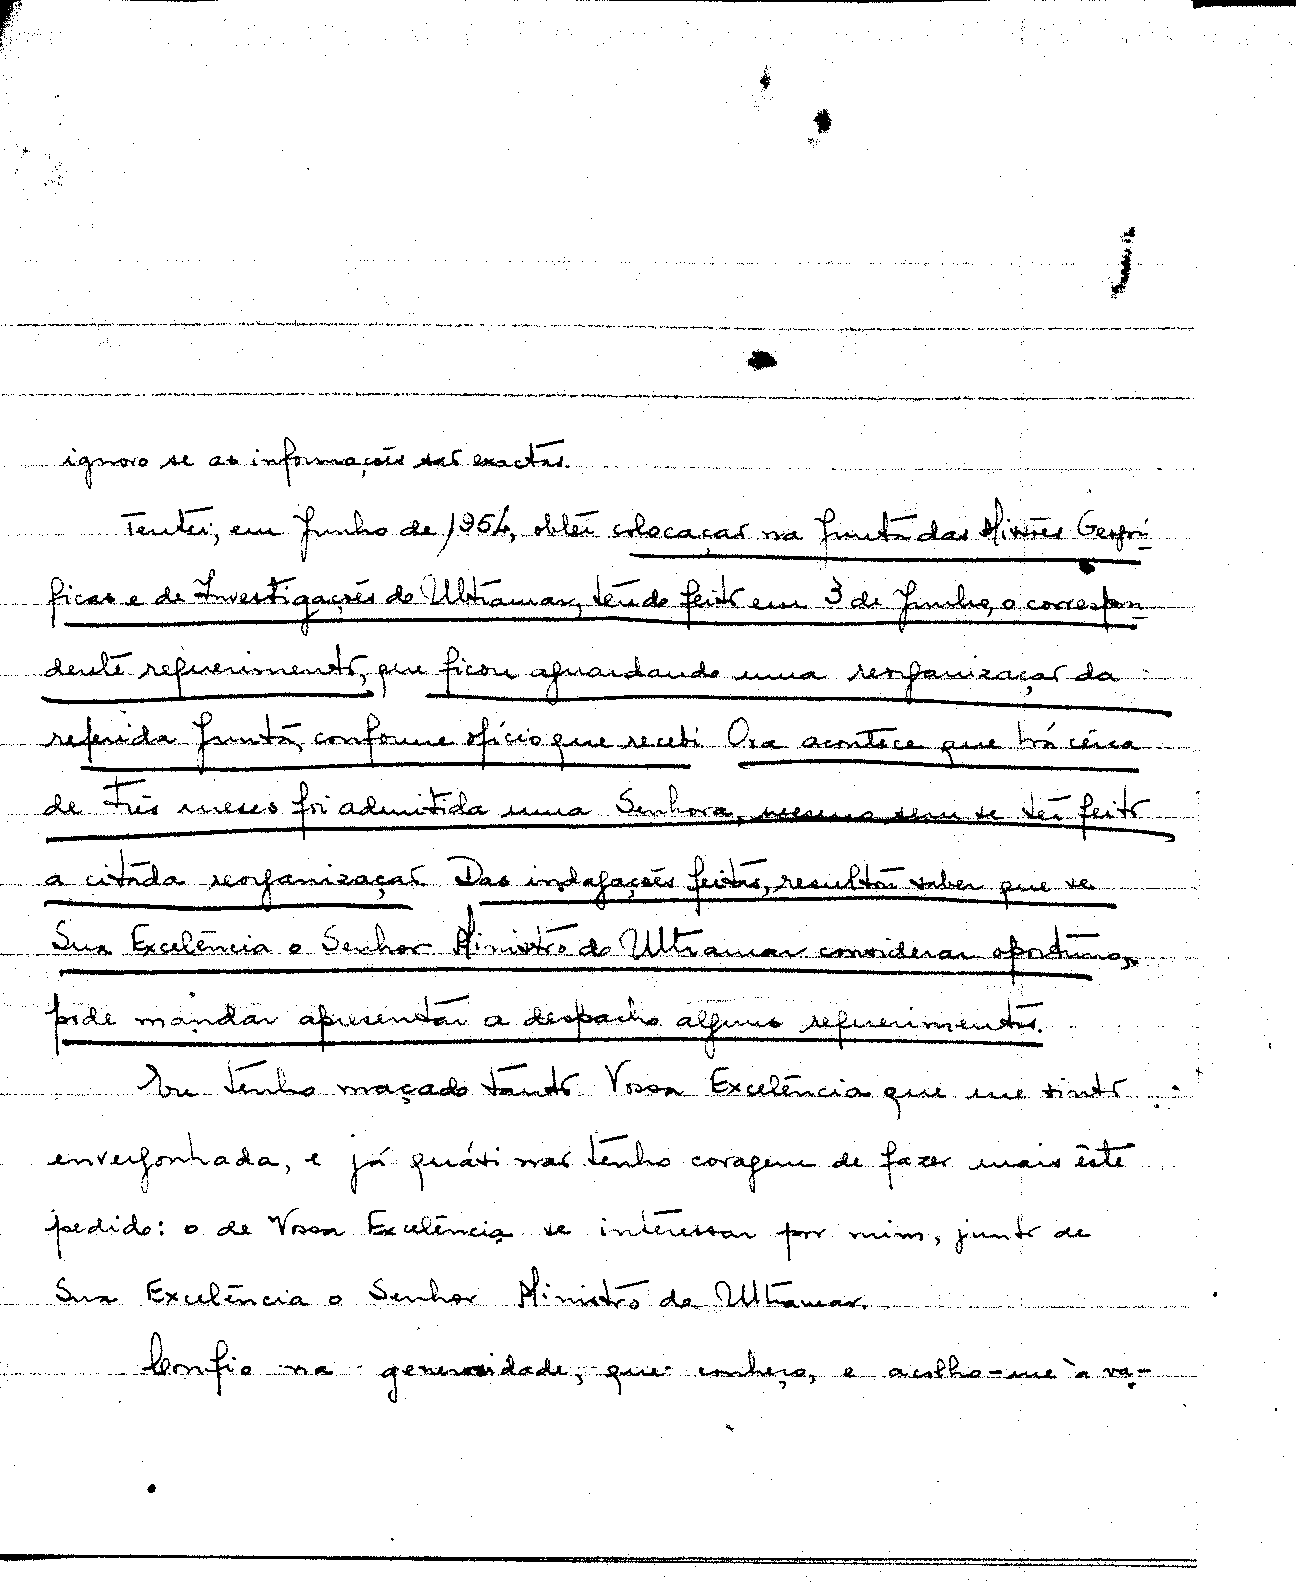 ignoro se as informações são exactas.
Tentei, em Junho de 1954, obter colocação na Junta das Missões Geográ-
ficas e de Investigações do Ultramar, tendo feito em 3 de Junho, o correspon-
dente requerimento, que ficou aguardando uma reorganização da
referida Junta, conforme ofício que recebi. Ora acontece que há cêrca
de três meses foi admitida uma Senhora, mesmo sem se ter feito
a citada reorganização. Das indagações feitas, resultou saber que se
Sua Excelência o Senhor Ministro do Ultramar considerar oportuno,
pode mandar apresentar a despacho alguns requerimentos.
Eu tenho maçado tanto Vossa Excelência que me sinto
envergonhada, e já quási não tenho coragem de fazer mais êste
pedido: o de Vossa Excelência se interessar por mim, junto de
Sua Excelência o Senhor Ministro do Ultramar.
Confio na generosidade, que conheço, e acolho-me à va-